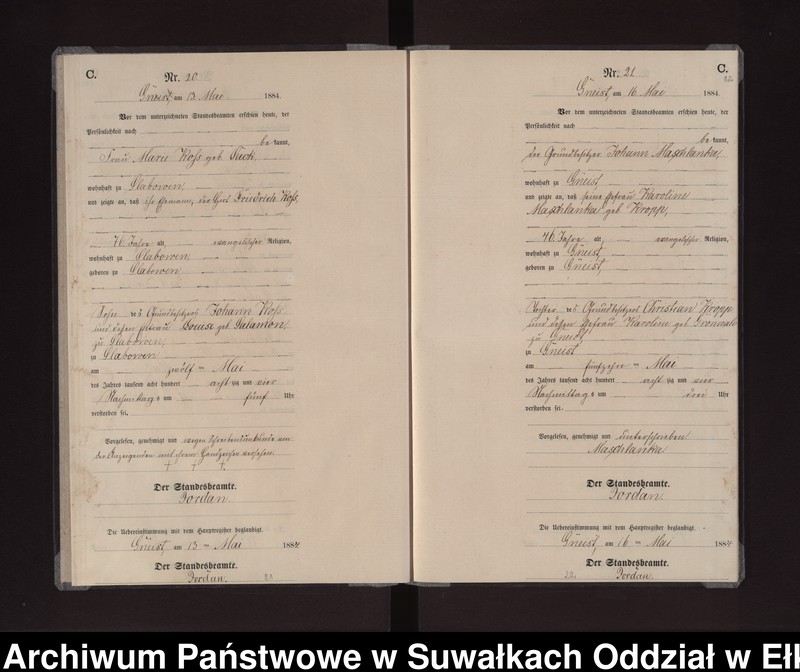 C.
Nr. 20
Gneist, am 13. Mai 1884.
Vor dem unterzeichneten Standesbeamten erschien heute, der
Persönlichkeit nach
be kannt,
Frau Marie Koss geb.
wohnhaft zu Slabowen
und zeigte an, daß ihr Ehemann, der Friedrich Koss,
76 Jahre alt, evangelischer Religion,
wohnhaft zu Slabowen,
geboren zu Slabowen
Sohn des Grundbesitzers Johann Koss
und dessen Louise geb.
zu Slabowen,
zu Slabowen
am zwölf ten Mai
des Jahres tausend acht hundert acht zig und vier
Nachmittags um fünf Uhr
verstorben sei.
Vorgelesen, genehmigt und wegen Schreibensunkunde von
der Anzeigenden mit ihrem Handzeichen versehen.
† † †
Der Standesbeamte.
Jordan.
Die Uebereinstimmung mit dem Hauptregister beglaubigt.
Gneist, am 13 ten Mai 1884
Der Standesbeamte.
Jordan.
C.
Nr. 21
Gneist, am 16. Mai 1884.
Vor dem unterzeichneten Standesbeamten erschien heute, der
Persönlichkeit nach
be kannt,
der Grundbesitzer Johann Maschlanka,
wohnhaft zu Gneist,
und zeigte an, daß seine Ehefrau Karoline
Maschlanka geb. Kropp,
46 Jahre alt, evangelischer Religion,
wohnhaft zu Gneist,
geboren zu Gneist,
Tochter des Grundbesitzers Christian Kropp
und dessen Ehefrau Karoline geb.
zu Gneist
zu Gneist
am fünfzehn ten Mai
des Jahres tausend acht hundert acht zig und vier
Nachmittags um drei Uhr
verstorben sei.
Vorgelesen, genehmigt und unterschrieben
Maschlanka
Der Standesbeamte.
Jordan.
Die Uebereinstimmung mit dem Hauptregister beglaubigt.
Gneist, am 16 ten Mai 1884
Der Standesbeamte.
Jordan.
Archiwum Państwowe w Suwałkach Oddział w Eł